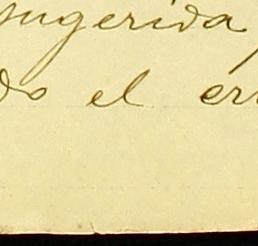 sugerida,
do el err